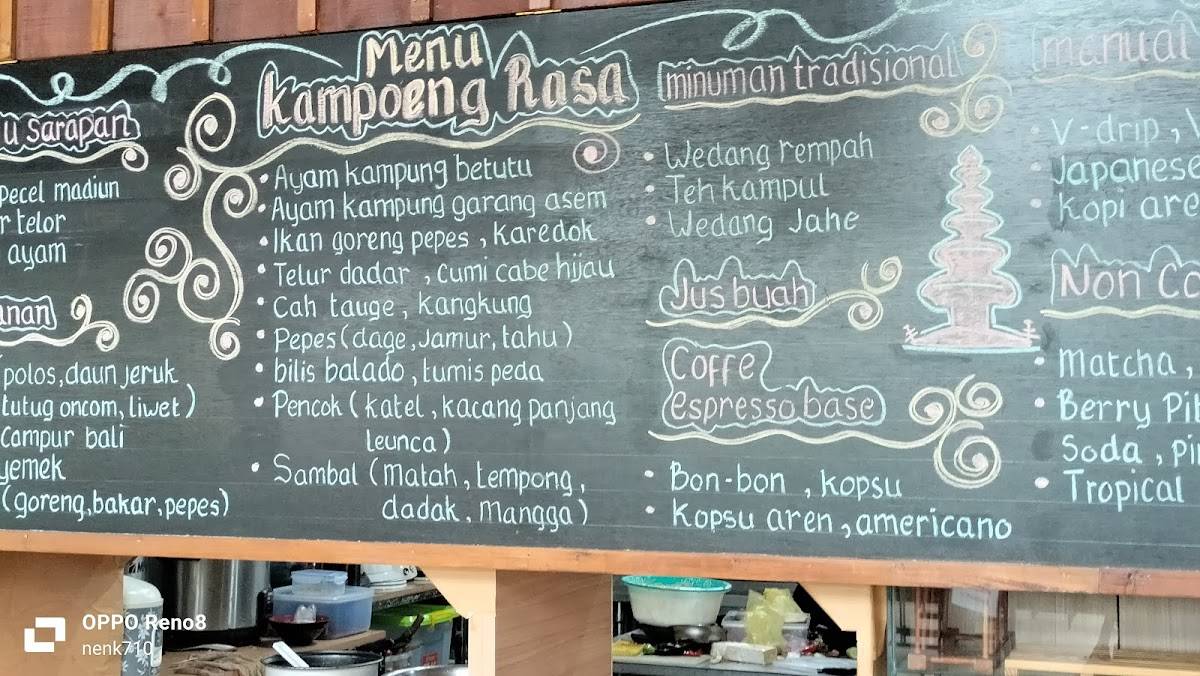 Menu
Kampoeng Rasa
u sarapan
Pecel madiun
r telor
ayam
anan
(polos, daun jeruk
tutug oncom, liwet)
Campur bali
yemek
(goreng, bakar, pepes)
• Ayam kampung betutu
• Ayam kampung garang asem
• Ikan goreng pepes, karedok
• Telur dadar, cumi cabe hijau
• Cah tauge, kangkung
• Pepes (dage, Jamur, tahu)
• bilis balado, tumis peda
• Pencok (katel, kacang panjang
leunca)
• Sambal (Matah, tempong,
dadak, Mangga)
minuman tradisional
• Wedang rempah
• Teh kampul
• Wedang Jahe
Jus buah
Coffe
espresso base
• Bon-bon, kopsu
• Kopsu aren, americano
manual
• V-drip,
Japanese
• Kopi are
Non Co
• Matcha,
• Berry
Soda,
• Tropical
OPPO Reno8
nenk710